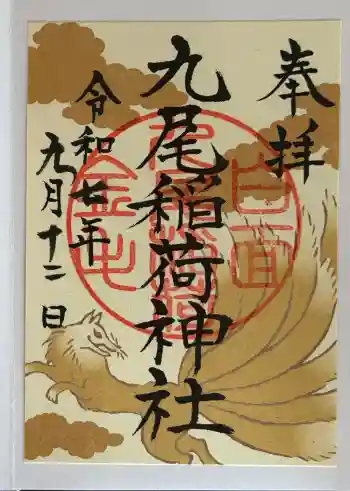 奉拝
九尾稲荷神社
令和七年
九月十二日